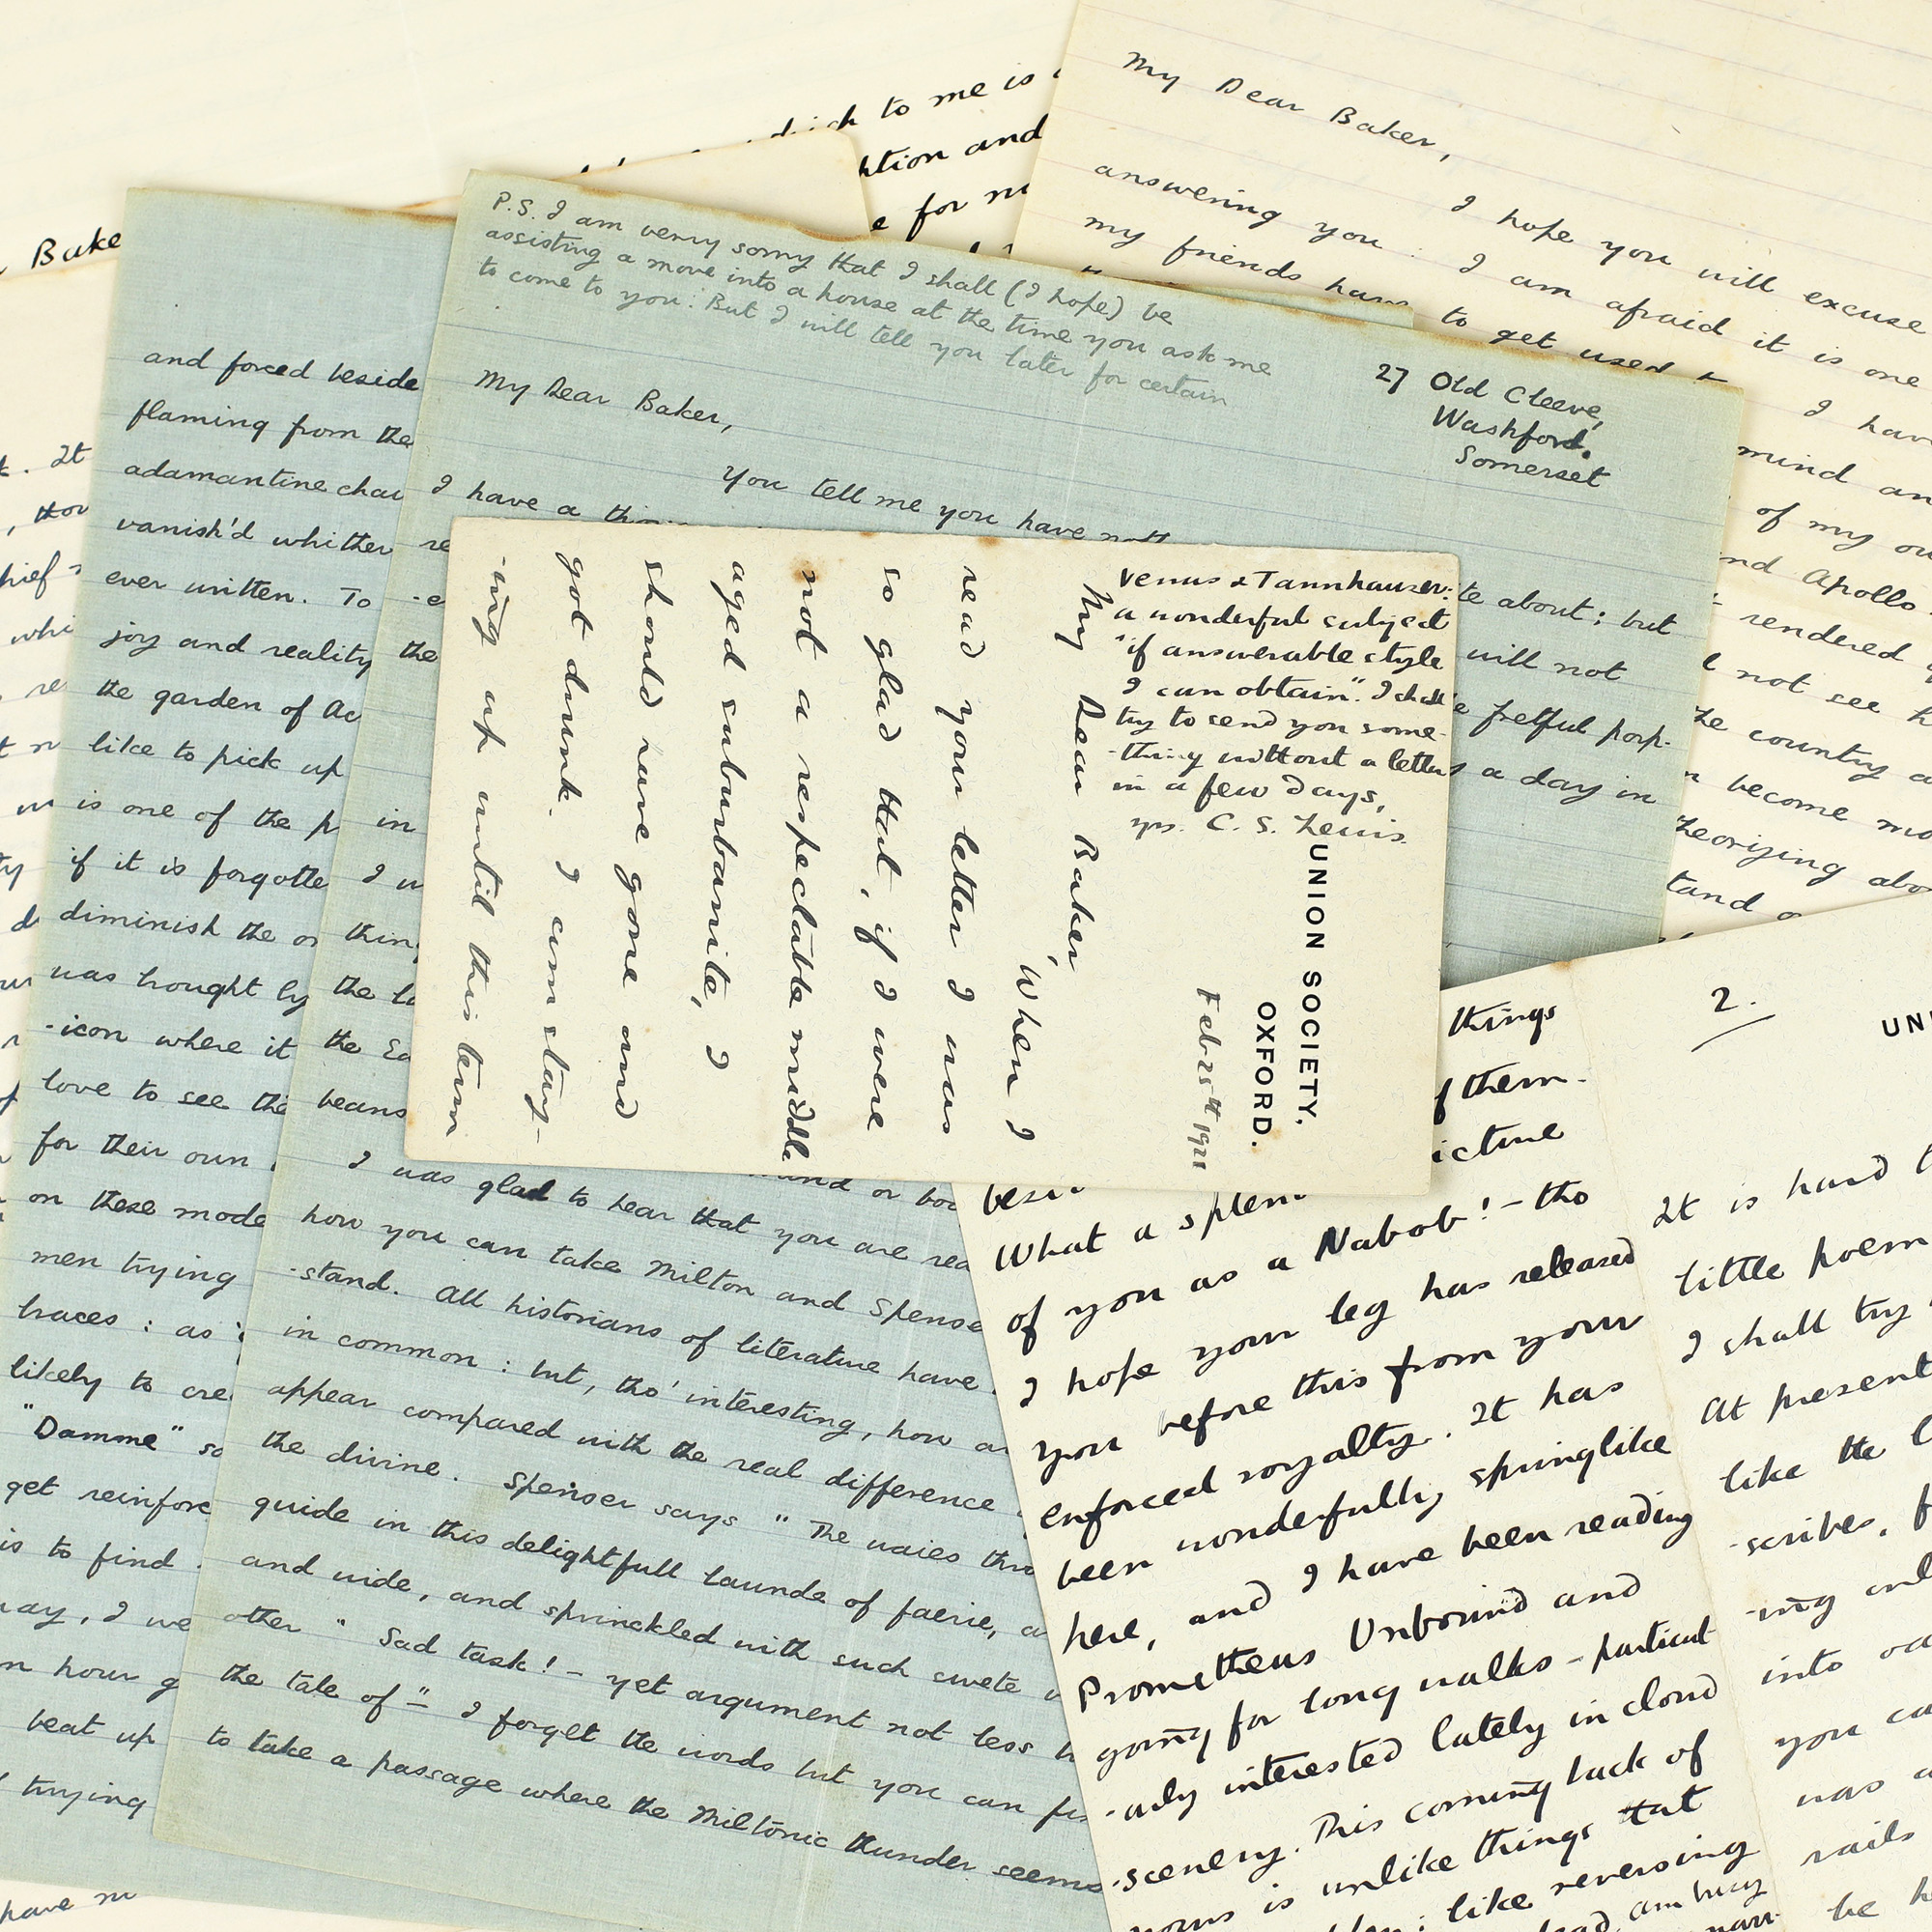 ch to me is
tion and
e for
Bake
My Dear Baker,
I hope you will excuse
answering you : I am afraid it is one
my friends have to get used
I have
mind an
of my ou
nd Apollo.
rendered
not see h
the country a
become mo
theorizing abo
tand
and forced beside
flaming from the
adamantine chai
vanish'd whither
ever written. To
joy and reality
the garden of Ac
like to pick up
is one of the p
if it is forgotte
diminish the or
was brought by
-icon where it
love to see the
for their own
on these mode
men trying
traces : as
likely to cre
"Damme" so
get reinforc
is to find
way, I we
n hour g
beat up
trying
have
P.S. I am very sorry that I shall (I hope) be
assisting a move into a house at the time you ask me
to come to you : But I will tell you later for certain
27 Old Cleeve,
Washford.
Somerset
My Dear Baker,
You tell me you have nott
I have a
te about ; but
will not
fretful porp-
a day in
the
in
thing
the
beans
mind or bo
I was glad to hear that you are rea
how you can take Milton and Spense
-stand. All historians of literature have
in common : but, tho' interesting, how
appear compared with the real difference
the divine. Spenser says "The waies thro
guide in this delightfull launde of faerie,
and wide, and sprinckled with such swete
other " Sad task! – yet argument not less
the tale of" – I forget the words but you can
to take a passage where the Miltonic thunder seems
UNION SOCIETY,
OXFORD.
Feb 25th 1921
My Dear Baker,
When I
read your letter I was
so glad that, if I were
not a respectable middle
aged suburbanite, I
should have gone and
got drunk. I am stay-
-ing up until this term
Venus & Tannhauser:
a wonderful subject
"if answerable style
I can obtain". I shall
try to send you some-
-thing without a letter
in a few days,
yrs. C. S. Lewis.
things
f them.
icture
What a splen
of you as a Nabob! – tho
I hope your leg has released
you before this from your
enforced royalty. It has
been wonderfully springlike
here, and I have been reading
Prometheus Unbound and
going for long walks – particul
-arly interested lately in cloud
scenery. This coming back of
yours is unlike things that
like reversing
2.
UNI
It is hard
little poem
I shall try
At present
like the
-scribes,
-ing
into
you ca
was
rails
be h